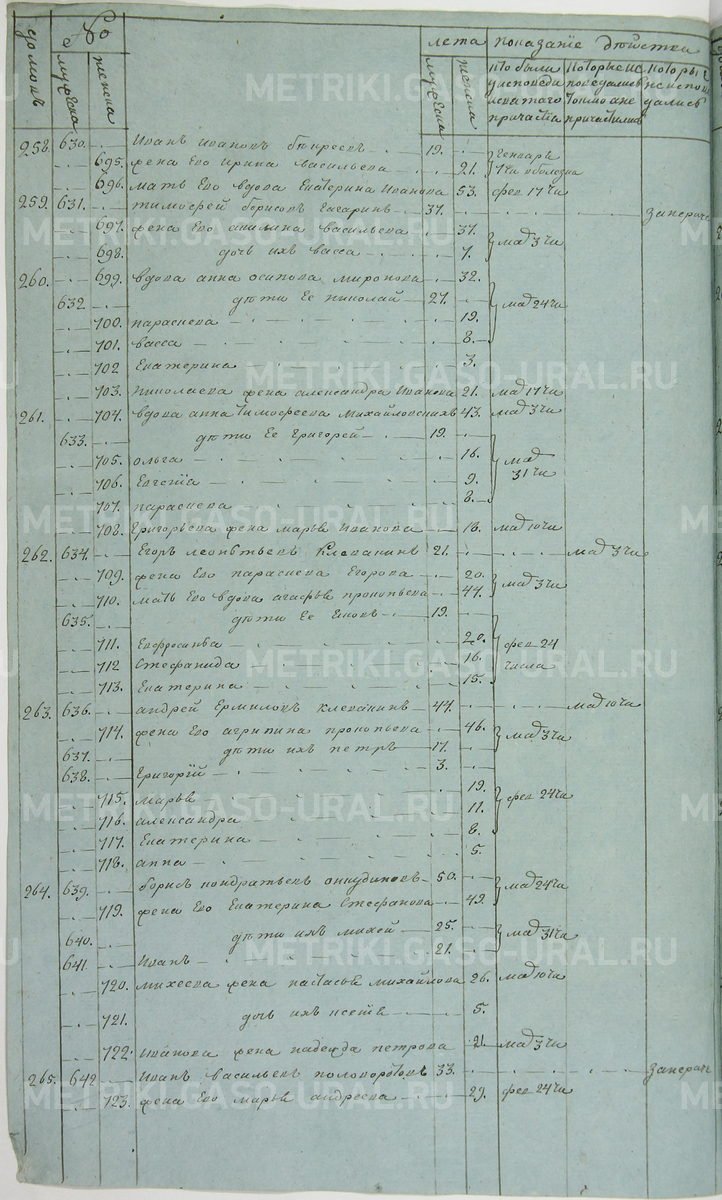 № лета показание действа
домовъ мужеска женска мужеска женска кто были у исповеди и святаго причастия которые исповедались токмо а не причастились которые не исповедались
258. 630. Иванъ Ивановъ 19.
695. жена Его Ирина Васильева 21. Генваря
696. мать Его вдова Екатерина Иванова 53. фев 17 чи
259. 631. Тимофей Борисовъ Гагаринъ 37. за нерачи
697. жена Его Акилина Васильева 37. ма 3 чи
698. дочь ихъ Васса 7.
260. 699. вдова Анна Осипова Миронова 32.
632 дети Ее Николай 27. ма 24 чи
700. Параскева 19.
701. Васса 8.
702 Екатерина 3.
703. Николаева жена Александра Иванова 21. ма 17 чи
261. 704. вдова Анна Тимофеева Михайловскихъ 43. ма 3 чи
633. дети Ее Григорей 19.
705. Ольга 16. ма
706. Евгения 9. 31 чи
707. Параскева 8.
708. Григорьева жена Марья Иванова 18. ма 10 чи
262. 634. Егоръ Леонтьевъ Клевакинъ 21. ма 3 чи
709. жена Его Параскева Егорова 20. ма 3 чи
710. мать Его вдова Агафья Прокопьева 47.
635. дети Ее 19.
711. Евфросинья 20. фев 24
712 Стефанида 16. числа
713. Екатерина 15.
263. 636. Андрей Ермиловъ Клевакинъ 47. ма 10 чи
714. жена Его Агрипина Прокопьева 46. ма 3 чи
637. дети ихъ Петръ 17.
638. Григорiй 3.
715. Марья 19. фев 24 чи
716. Александра 11.
717. Екатерина 8.
718. Анна 5.
264. 639. Борисъ Кондратьевъ Анкудиновъ 50. ма 24 чи
719. жена Его Екатерина Стефанова 49.
640. дети ихъ Михей 25. ма 31 чи
641 Иванъ 21.
720. Михеева жена Настасья Михайлова 26. ма 10 чи
721. дочь ихъ 5.
722. Иванова жена Надежда Петрова 21. ма 3 чи
265. 642 Иванъ Васильевъ 33. за нерачи
723. жена Его Марья Андреева 29. фев 24 чи
METRIKI.GASO-URAL.RU